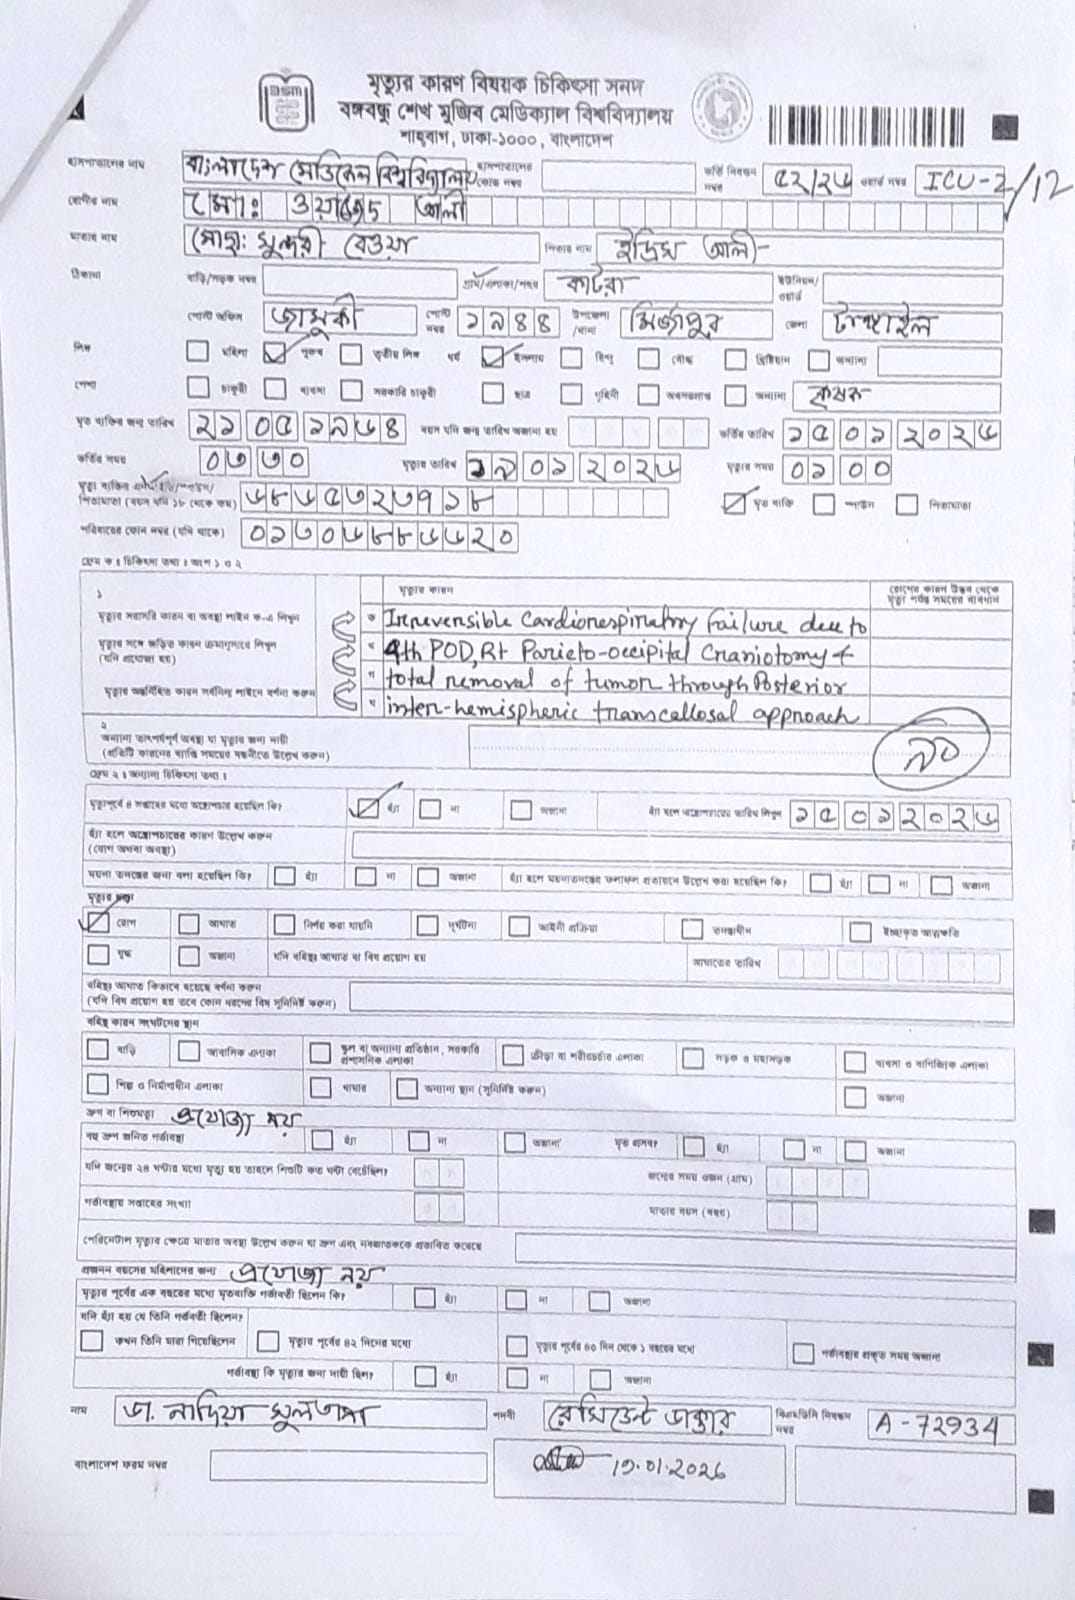 মৃত্যুর কারণ বিষয়ক চিকিৎসা সনদ
বঙ্গবন্ধু শেখ মুজিব মেডিক্যাল বিশ্ববিদ্যালয়
শাহবাগ, ঢাকা-১০০০, বাংলাদেশ
হাসপাতালের নাম বাংলাদেশ মেডিকেল বিশ্ববিদ্যালয় হাসপাতালের কোড নম্বর ভর্তি নিবন্ধন নম্বর ৫২/২৬ ওয়ার্ড নম্বর ICU-2/12
রোগীর নাম মোঃ আলী
মাতার নাম মোছাঃ সুন্দরী বেওয়া পিতার নাম ইদ্রিস আলী
ঠিকানা বাড়ি/সড়ক নম্বর গ্রাম/এলাকা/শহর কাটরা ইউনিয়ন/ওয়ার্ড
পোস্ট অফিস জামুর্কী পোস্ট নম্বর ১৯৪৪ উপজেলা/থানা মির্জাপুর জেলা টাঙ্গাইল
লিঙ্গ মহিলা পুরুষ তৃতীয় লিঙ্গ ধর্ম ইসলাম হিন্দু বৌদ্ধ খ্রিষ্টিয়ান অন্যান্য
পেশা চাকুরী ব্যবসা সরকারি চাকুরী ছাত্র গৃহিনী অবসরপ্রাপ্ত অন্যান্য কৃষক
মৃত ব্যক্তির জন্ম তারিখ ২১০৫১৯৬৪ বয়স যদি জন্ম তারিখ অজানা হয় ভর্তির তারিখ ১৫০১২০২৬
ভর্তির সময় ০৭৩০ মৃত্যুর তারিখ ১৯০১২০২৬ মৃত্যুর সময় ০১০০
মৃত্যু ব্যক্তির এনআইডি/ /
পিতামাতা (বয়স যদি ১৮ থেকে কম) মৃত ব্যক্তি পিতামাতা
পরিবারের ফোন নম্বর (যদি থাকে)
ফ্রেম ক ঃ চিকিৎসা তথ্য ঃ অংশ ১ ও ২
১ মৃত্যুর কারণ রোগের কারণ উদ্ভব থেকে মৃত্যু পর্যন্ত সময়ের ব্যবধান
মৃত্যুর সরাসরি কারণ বা অবস্থা লাইন ক-এ লিখুন ক Irreversible Cardiorespiratory failure due to
মৃত্যুর সঙ্গে জড়িত কারণ ক্রমানুসারে লিখুন (যদি প্রযোজ্য হয়) খ 4th POD, Rt Parieto-occipital Craniotomy +
গ total removal of tumor through Posterior
মৃত্যুর অন্তর্নিহিত কারণ সর্বনিম্ন লাইনে বর্ণনা করুন ঘ inter-hemispheric transcallosal approach
২
অন্যান্য তাৎপর্যপূর্ণ অবস্থা যা মৃত্যুর জন্য দায়ী
(প্রতিটি কারণের ব্যাপ্তি সময়ের বন্ধনীতে উল্লেখ করুন)
ফ্রেম খ ঃ অন্যান্য চিকিৎসা তথ্য ঃ
মৃত্যুপূর্ব ৪ সপ্তাহের মধ্যে অস্ত্রোপচার হয়েছিল কি? হ্যাঁ না অজানা হ্যাঁ হলে অস্ত্রোপচারের তারিখ লিখুন ১৫০১২০২৬
হ্যাঁ হলে অস্ত্রোপচারের কারণ উল্লেখ করুন
(রোগ অথবা অবস্থা)
ময়না তদন্তের জন্য বলা হয়েছিল কি? হ্যাঁ না অজানা হ্যাঁ হলে ময়নাতদন্তের ফলাফল প্রত্যয়নে উল্লেখ করা হয়েছিল কি? হ্যাঁ না অজানা
মৃত্যুর ধরণ
রোগ আঘাত নির্ণয় করা যায়নি দুর্ঘটনা আইনী প্রক্রিয়া তদন্তাধীন ইচ্ছাকৃত আত্মক্ষতি
যুদ্ধ অজানা যদি বহিঃস্থ আঘাত বা বিষ প্রয়োগ হয় আঘাতের তারিখ
বহিঃস্থ আঘাত কিভাবে হয়েছে বর্ণনা করুন
(যদি বিষ প্রয়োগ হয় তবে কোন ধরনের বিষ সুনির্দিষ্ট করুন)
বহিস্থ কারণ সংঘটনের স্থান
বাড়ি আবাসিক এলাকা স্কুল বা অন্যান্য প্রতিষ্ঠান, সরকারি প্রশাসনিক এলাকা ক্রীড়া বা শরীরচর্চার এলাকা সড়ক ও মহাসড়ক ব্যবসা ও বাণিজ্যিক এলাকা
শিল্প ও নির্মাণাধীন এলাকা খামার অন্যান্য স্থান (সুনির্দিষ্ট করুন) অজানা
ভ্রূণ বা শিশুমৃত্যু প্রযোজ্য নয়
বহু ভ্রূণ জনিত গর্ভাবস্থা হ্যাঁ না অজানা মৃত প্রসব? হ্যাঁ না অজানা
যদি জন্মের ২৪ ঘন্টার মধ্যে মৃত্যু হয় তাহলে শিশুটি কত ঘন্টা বেঁচেছিল? জন্মের সময় ওজন (গ্রাম)
গর্ভাবস্থায় সপ্তাহের সংখ্যা মাতার বয়স (বছর)
পেরিনেটাল মৃত্যুর ক্ষেত্রে মাতার অবস্থা উল্লেখ করুন যা ভ্রূণ এবং নবজাতককে প্রভাবিত করেছে
প্রজনন বয়সের মহিলাদের জন্য প্রযোজ্য নয়
মৃত্যুর পূর্বের এক বছরের মধ্যে মৃতব্যক্তি গর্ভবতী ছিলেন কি? হ্যাঁ না অজানা
যদি হ্যাঁ হয় তবে তিনি গর্ভবতী ছিলেন?
কখন তিনি মারা গিয়েছিলেন মৃত্যুর পূর্বের ৪২ দিনের মধ্যে মৃত্যুর পূর্বের ৪৩ দিন থেকে ১ বছরের মধ্যে গর্ভাবস্থার প্রকৃত সময় অজানা
গর্ভাবস্থা কি মৃত্যুর জন্য দায়ী ছিল? হ্যাঁ না অজানা
নাম ডা. নাদিয়া সুলতানা পদবী রেসিডেন্ট ডাক্তার বিএমডিসি নিবন্ধন নম্বর A-72934
বাংলাদেশ ফরম নম্বর 19.01.2026